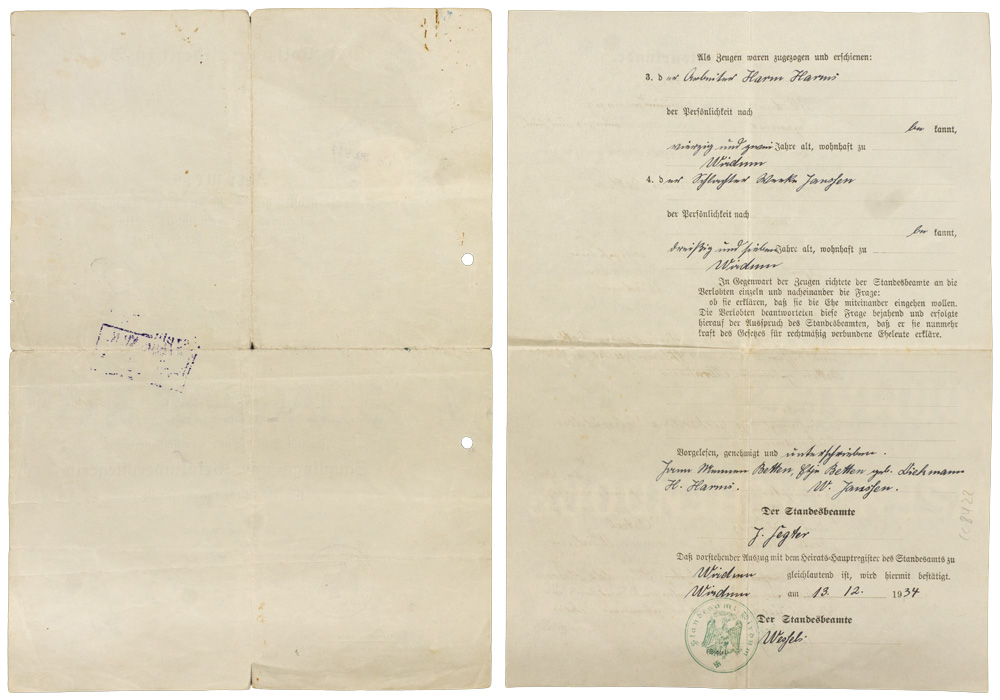 Als Zeugen waren zugezogen und erschienen:
3. der Arbeiter Harm Harms
der Persönlichkeit nach
be kannt,
vierzig und zwei Jahre alt, wohnhaft zu
Wirdum
4. der Schlachter Weerke Janssen
der Persönlichkeit nach
be kannt,
dreißig und sieben Jahre alt, wohnhaft zu
Wirdum
In Gegenwart der Zeugen richtete der Standesbeamte an die
Verlobten einzeln und nacheinander die Frage:
ob sie erklären, daß sie die Ehe miteinander eingehen wollen.
Die Verlobten beantworteten diese Frage bejahend und erfolgte
hierauf der Ausspruch des Standesbeamten, daß er sie nunmehr
kraft des Gesetzes für rechtmäßig verbundene Eheleute erkläre.
Vorgelesen, genehmigt und unterschrieben.
Betten, Betten geb. Dickmann
H. Harms. W. Janssen.
Der Standesbeamte
J. Tegter
Daß vorstehender Auszug mit dem Heirats-Hauptregister des Standesamts zu
Wirdum gleichlautend ist, wird hiermit bestätigt.
Wirdum am 13. 12. 1934
Der Standesbeamte
Wessels
Standesamt Wirdum